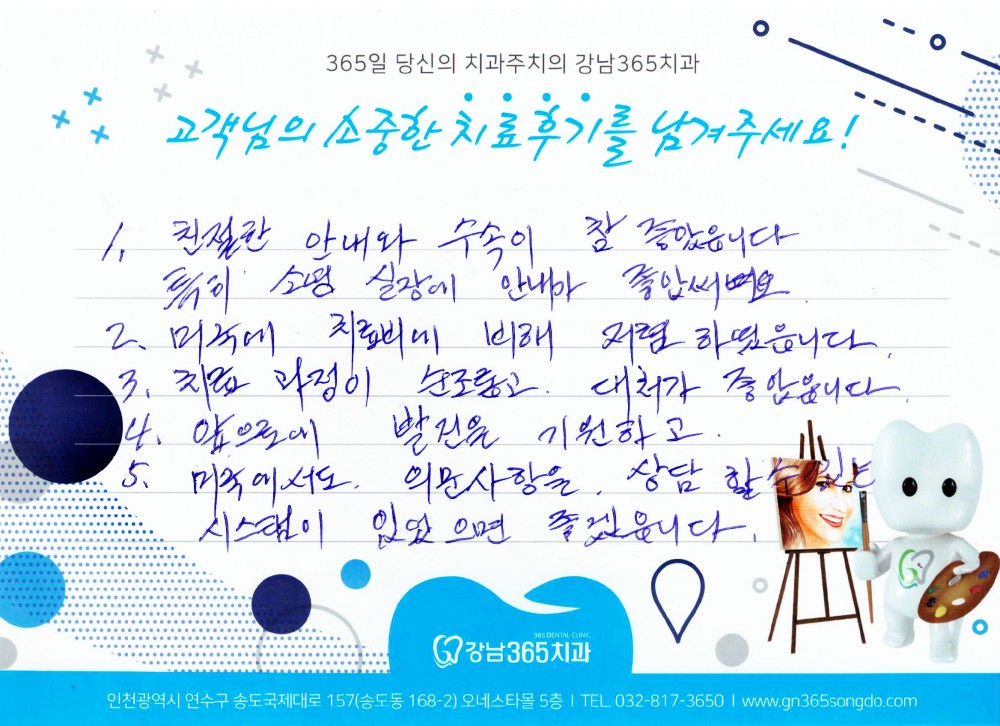 365일 당신의 치과주치의 강남365치과
고객님의 소중한 치료후기를 남겨주세요!
1. 친절한 안내와 수속이 참 좋았읍니다
특히 소평 실장에 안내가 좋았써며요
2. 미국에 치료비에 비해 저렴 하였읍니다.
3. 치료 과정이 순조롭고. 대처가 좋았읍니다.
4. 앞으로에 발전을 기원하고.
5. 미국에서도. 의문사항을. 상담 할 수 있는
시스템이 있었으면 좋겠읍니다.
365 DENTAL CLINIC
강남365치과
인천광역시 연수구 송도국제대로 157(송도동 168-2) 오네스타몰 5층 I TEL. 032-817-3650 I www.gn365songdo.com